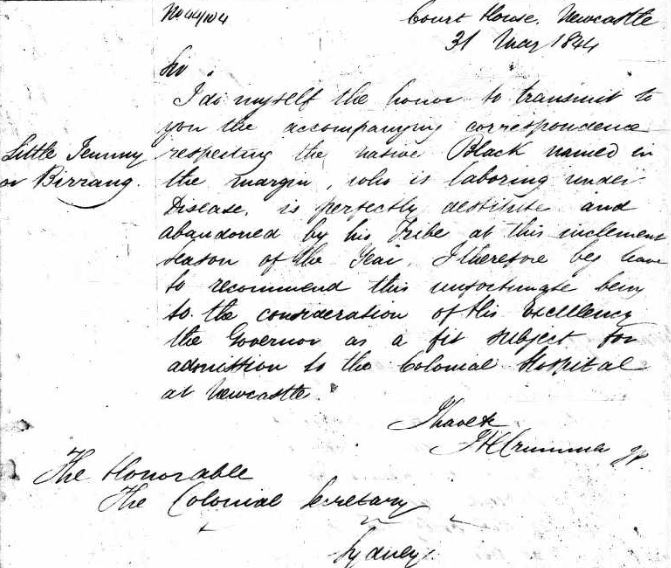 No 44/104
Court House, Newcastle
31 May 1844
Sir
I do myself the honor to transmit to
you the accompanying correspondence
respecting the native Black named in
the margin, who is laboring under
Disease, is perfectly destitute and
abandoned by his Tribe at this inclement
season of the Year. I therefore beg leave
to recommend this unfortunate being
to the consideration of His Excellency
the Governor as a fit subject for
admission to the Colonial Hospital
at Newcastle.
Little Jemmy
or Birrang.
I have &
JP
The Honorable
The Colonial Secretary
Sydney.